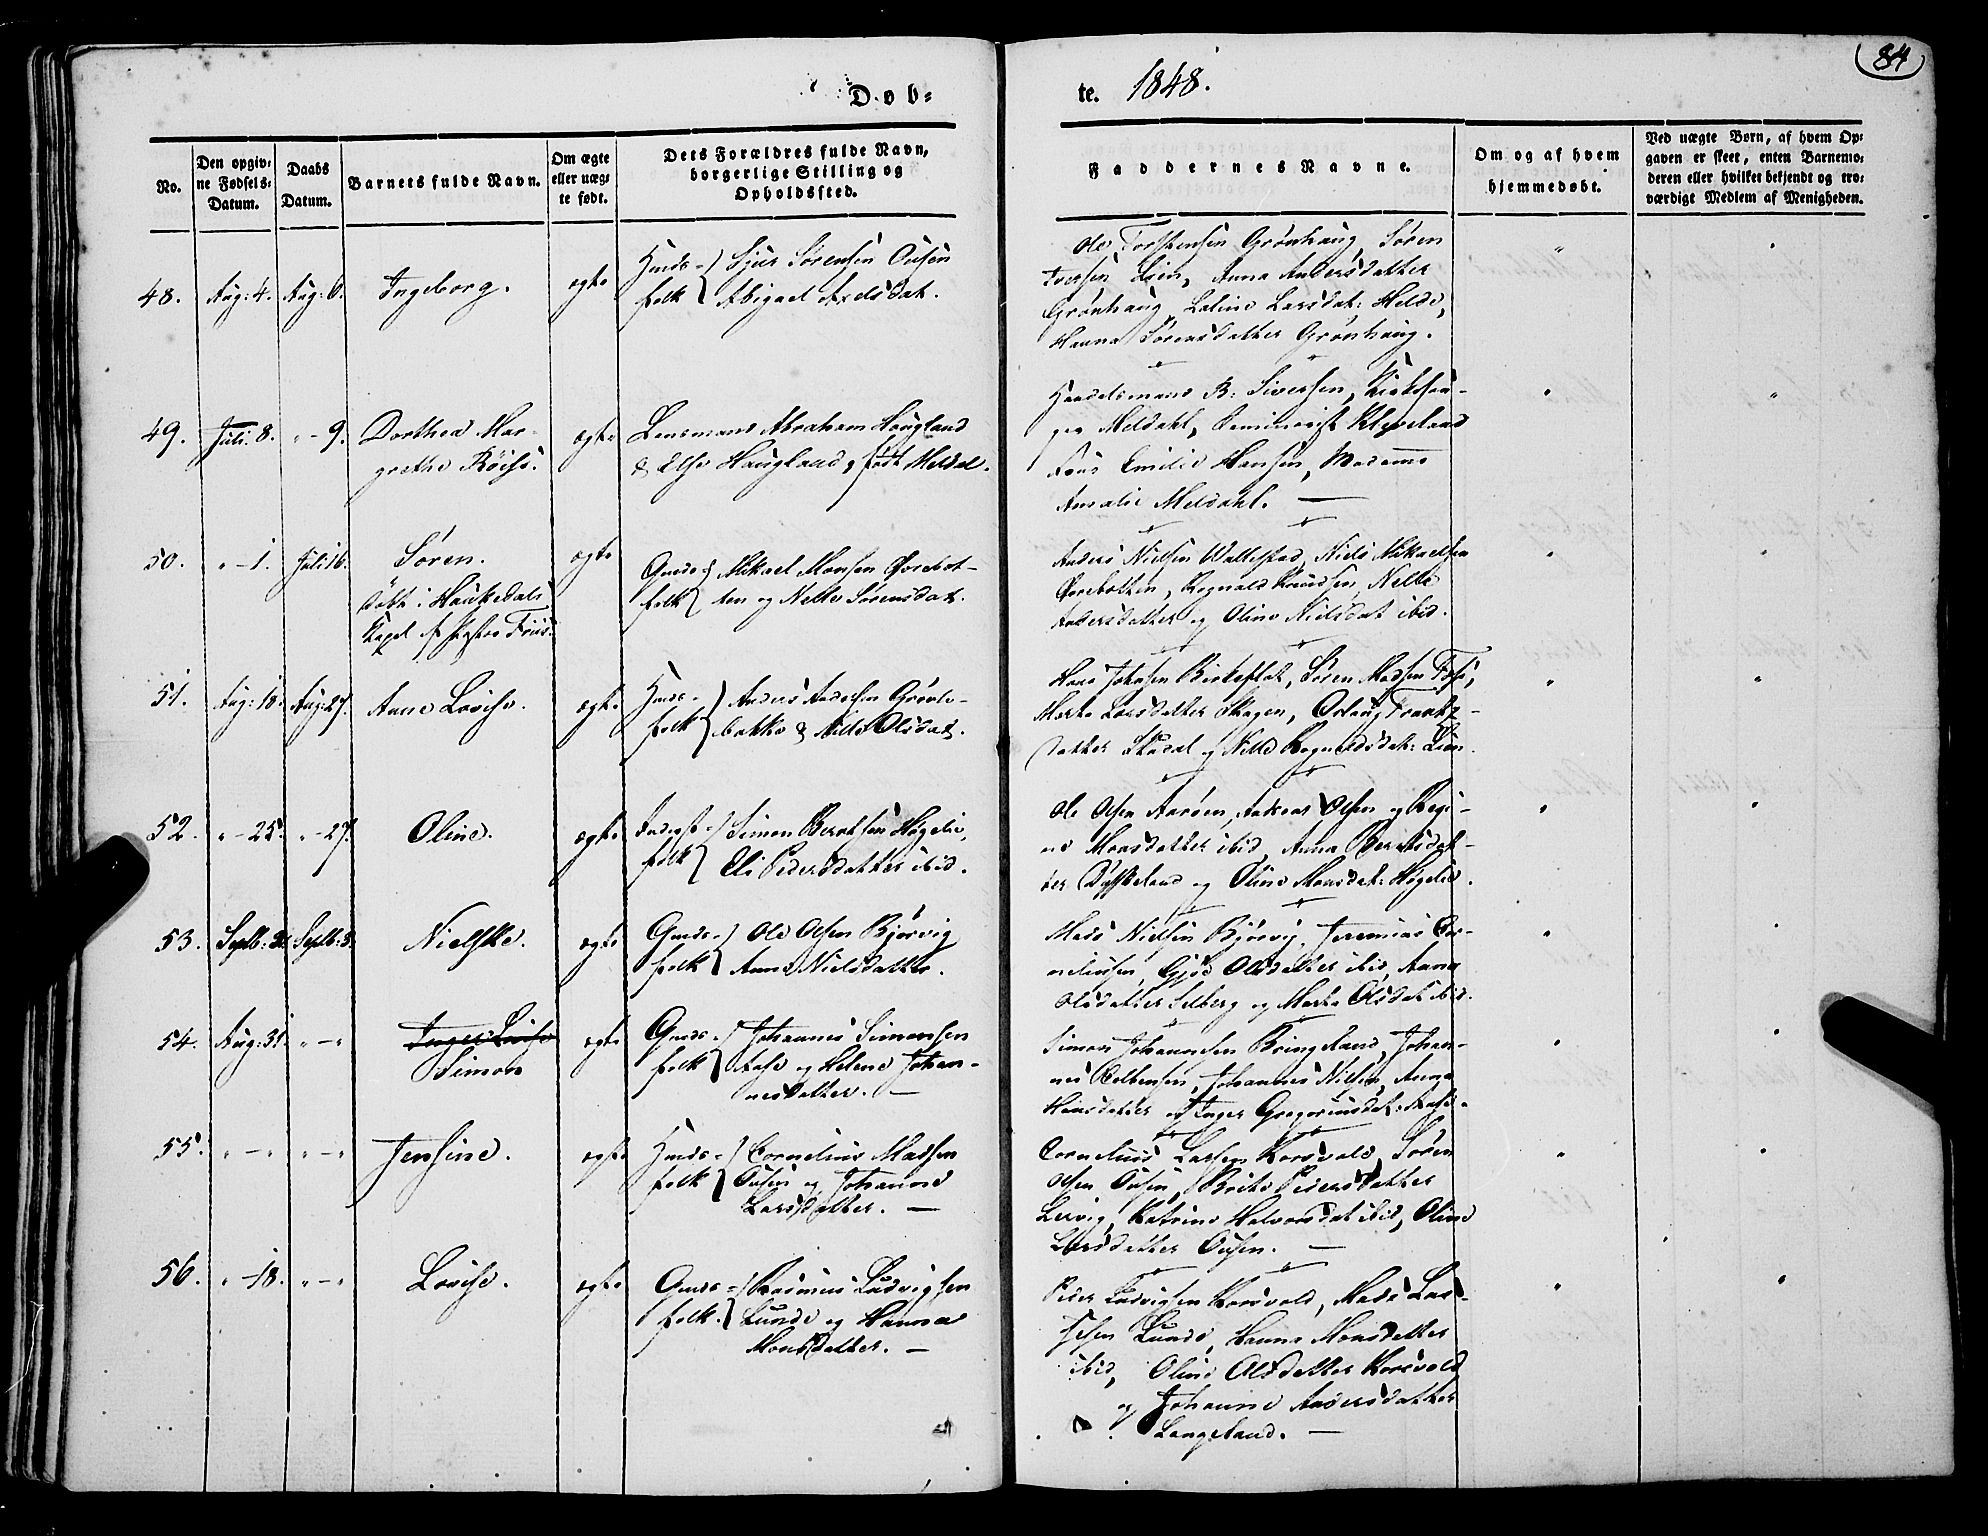 84
Døb-
te. 1848.
No.
Den opgiv-
ne Fødsels-
Datum.
Daabs
Datum.
Barnets fulde Navn.
Om ægte
eller uæg-
te født.
Dets Forældres fulde Navn,
borgerlige Stilling og
Opholdssted.
Faddernes Navne.
Om og af hvem
hjemmedøbt.
Ved uægte Børn, af hvem Op-
gaven er skeet, enten Barnemo-
deren eller hvilket bekjendt og tro-
værdigt Medlem af Menigheden.
48. Aug: 4. Aug: 6. Ingeborg. ægte
Huus- Sjur Sørensen Ousen
folk Abigael Axelsdat.
Ole Torstensen Grønhaug, Søren
Iversen Lien, Anna Andersdatter
Grønhaug, Lovise Larsdat: Helde,
Hanna Sørensdatter Grønhaug.
49. Juli: 8. " - 9. Dorthea Mar-
grethe ægte
Lensmand Abraham Hougland
& Else Haugland, født Meldal.
Handelsmand R: Siversen, Kirkesan-
ger Meldahl, Seminarist Kleveland
Emilie Hansen, Madame
Amalie Meldahl. —
50. " - 1. Juli 16. Søren. ægte
døbt i Haukedals
Kapel af Pastor Friis.
Gaard- Mikael Monsen Førebot-
folk ten og Nelle Sørensdat.
Anders Nielsen Wallestad, Niels Mikaelsen
Førebotten, Rognald Knudsen, Nelle
Andersdatter og Oline Nielsdat ibid.
51. Aug: 18. Aug: 27. Anne Lovise. ægte
Huus- Anders Andersen Grøvle-
folk bakke & Nille Olsdat.
Hans Johnsen Birkeflot, Søren Madsen
Marta Larsdatter Skagen,
datter Skadal og Nille Rognaldsdat: Lien.
52. " - 25. " - 27. Oline. ægte
Inderst- Simon Berntsen Høgelie,
folk Eli Pedersdatter ibid.
Ole Olsen Aarøen, Olsen og Regi-
ne Monsdatter ibid, Anna Berntsdat-
ter og Oline Monsdat: Høgelie.
53. Septb: 2. Septb: 3. Nielske. ægte
Gaard- Ole Olsen Bjørvig
folk Anna Nielsdatter.
Mads Nielsen Bjørvig, Jeremias Cor-
neliusen, Olsdatter ibid, Anna
Olsdatter Solberg og Marta Olsdat ibid.
54. Aug: 31. " - " Inger Lovise ægte
Simon
Gaard- Johannes Simonsen
folk Aase og Helene Johan-
nesdatter. —
Simon Johannesen Bringeland, Johan-
nes Colbensen, Johannes Nilsen, Anna
Hansdatter og Inger Gregoriusdat: Aase.
55. " - " " - " Jensine. ægte
Huus- Cornelius Madsen
folk Ousen og Johanne
Larsdatter. —
Cornelius Larsen Korsvold, Søren
Olsen Ousen, Brite Pedersdatter
Lervig, Katrine Halvorsdat ibid, Oline
Larsdatter Ousen. —
56. " - 18. " - " Lovise. ægte
Gaard- Rasmus Ludvigsen
folk. Lunde og Hanna
Monsdatter. —
Peder Ludvigsen Korsvold, Mads Las-
sesen Lunde, Hanna Monsdatter
ibid, Oline Olsdatter Korsvold
og Johanne Andersdatter
Langeland. —